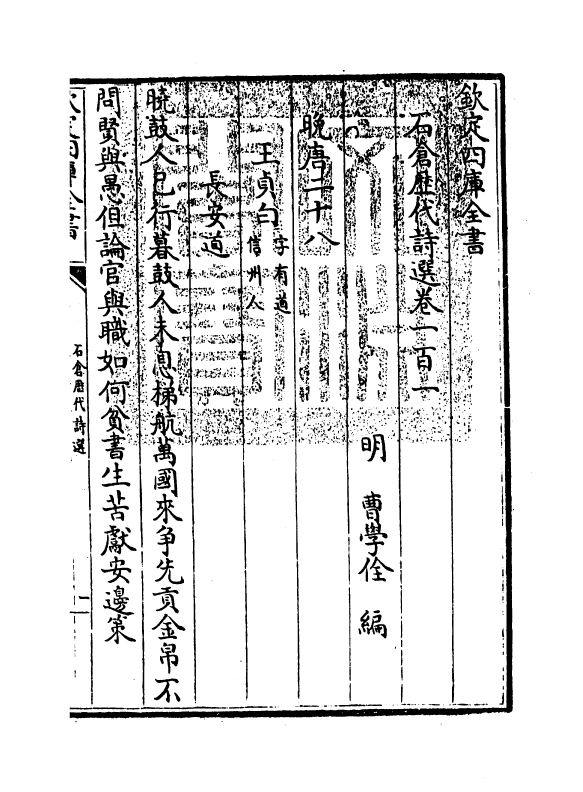 欽定四庫全書
石倉歴代詩選卷一百一
明 曹學佺 編
晚唐二十八
王貞白 字有道
信州人
長安道
曉鼓人已行暮鼓人未息梯航萬國來争先貢金帛不
問賢與愚但論官與職如何貧書生苦獻安邊策
欽定四庫全書
石倉歴代詩選
一